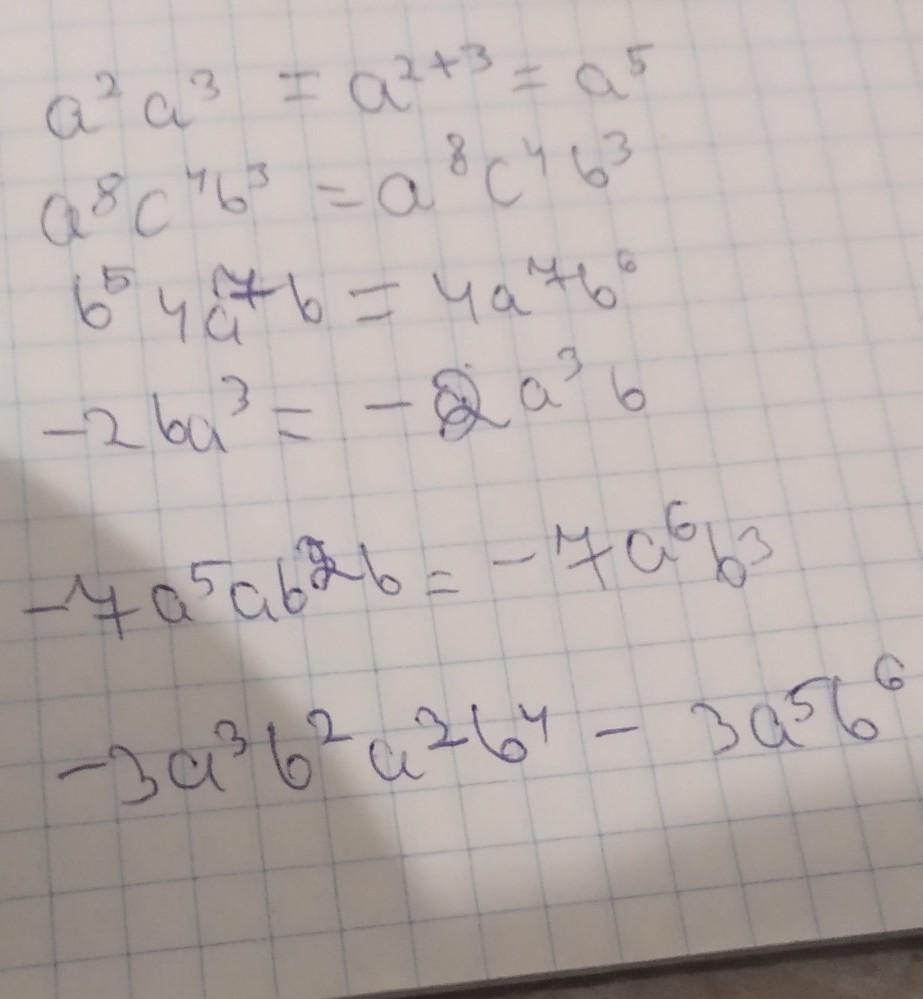 a² a³ = a²⁺³ = a⁵
a⁸c⁴b³ = a⁸c⁴b³
b⁵ 4a⁷b = 4a⁷b⁶
-2ba³ = -2a³b
-7a⁵ab²b = -7a⁶b³
-3a³b²a²b⁴ - 3a⁵b⁶